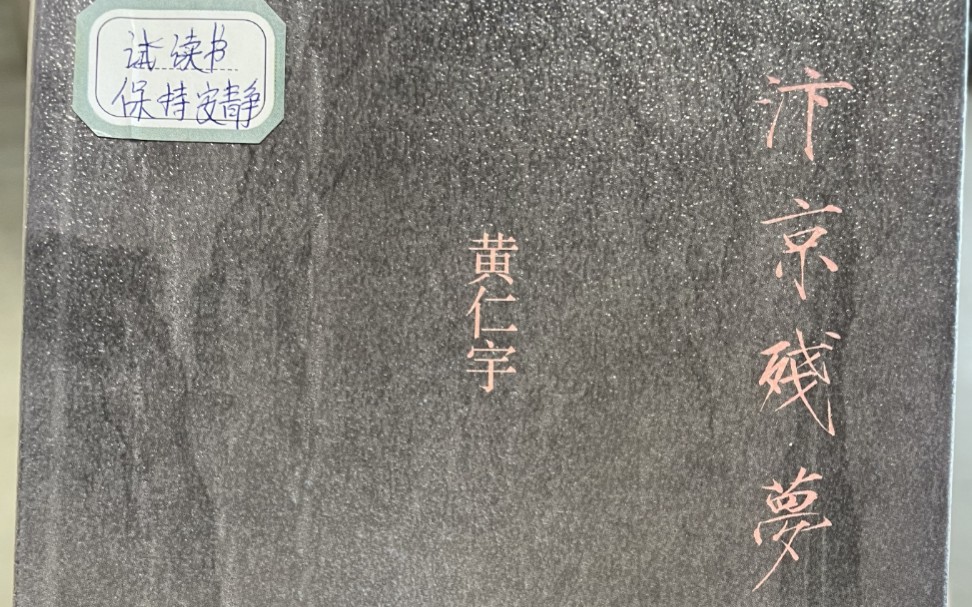 试读书
保持安静
汴京残夢
黄仁宇